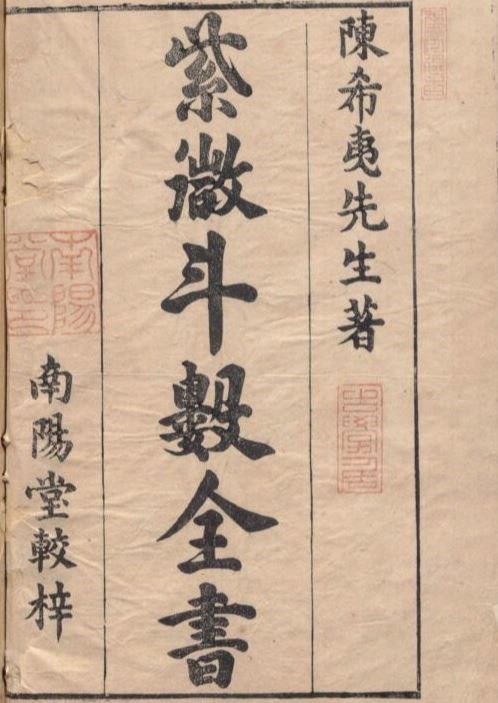 陳希夷先生著
紫微斗數全書
南陽堂較梓
南陽
堂